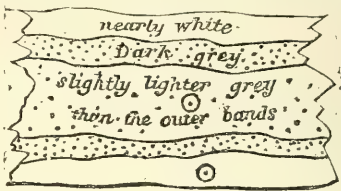 nearly white.
Dark grey.
slightly lighter grey
than the outer bands